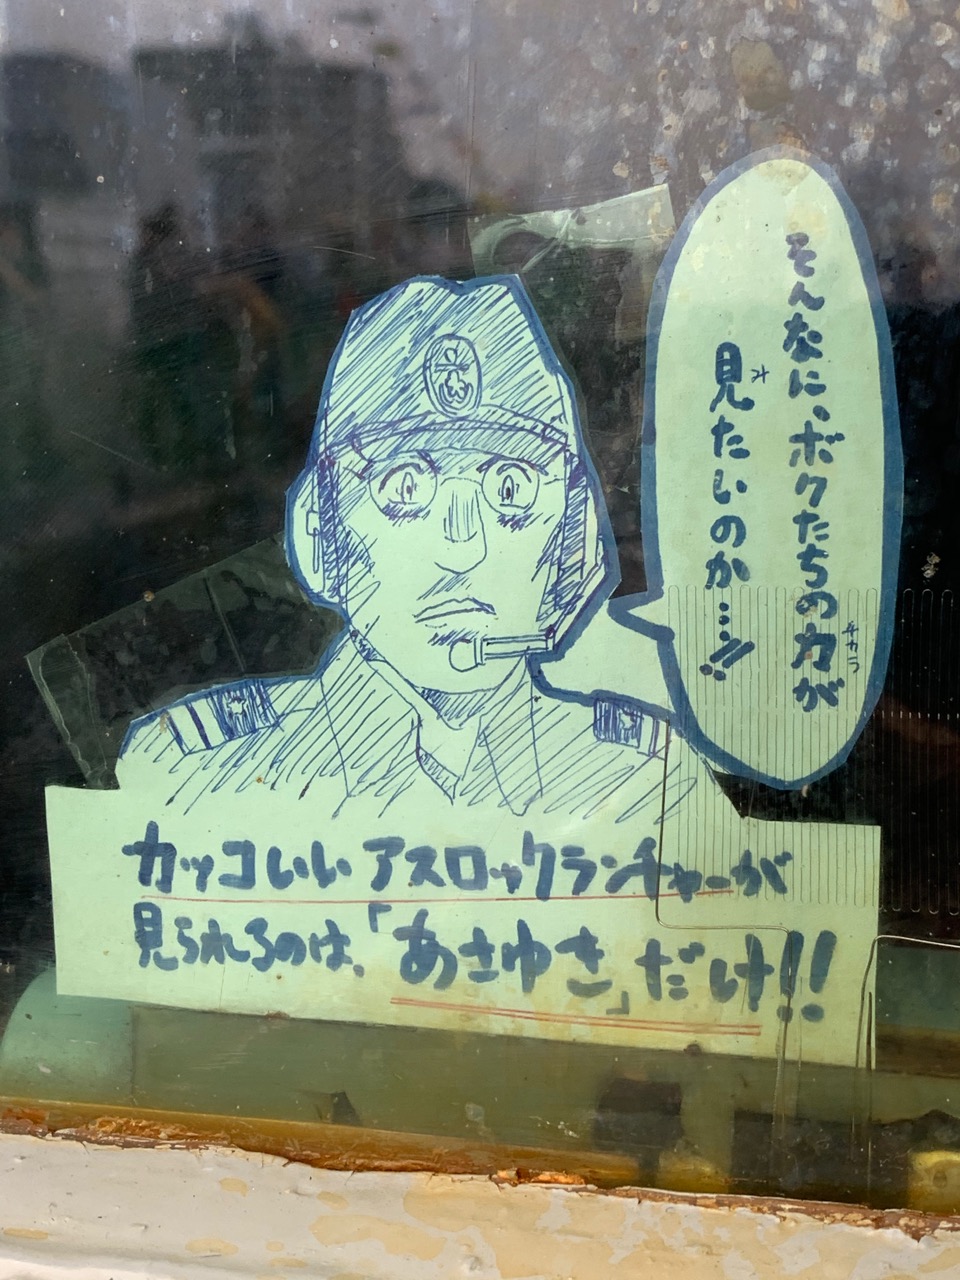 そんなに、ボクたちの力が
チカラ
見たいのか…!!
み
カッコいいアスロックランチャーが
見られるのは、「あさゆき」だけ!!